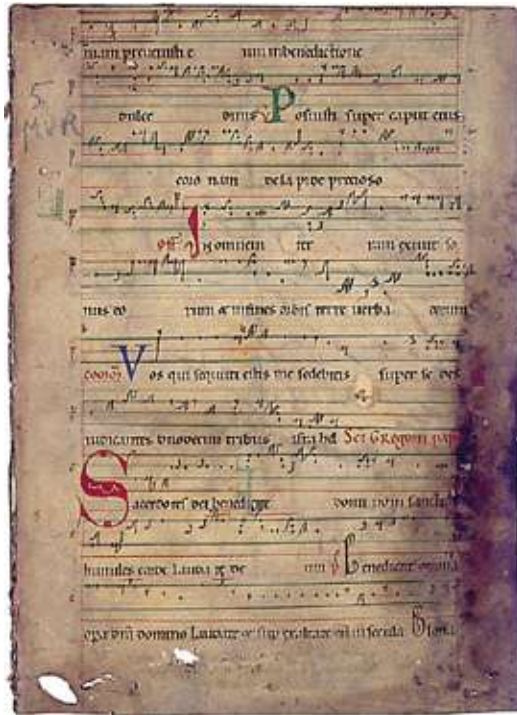 5
MVR
nam prevenisti e um in benedictione
dulce dinis Posuisti super caput eius
coro nam de la pide precioso
off In omnem ter ram exivit so
nus eo rum & in fines orbis terre verba eorum
Vos qui secuti estis me sedebitis super se des
iudicantes duodecim tribus isra hel Sci Gregorii pape
Sacerdotes dei benedicite
humiles corde Lauda te de um Benedicite omnia
opera dni domino Laudate et sup exaltate eum in secula Gloria